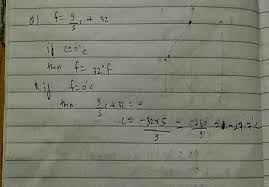 f = 9/5 c + 32
if c=0°c
then f= 32°f
& if f=0°c
then 9/5 c+32 = 0
c = -32×5/9 = -160/9 = -17.7°c